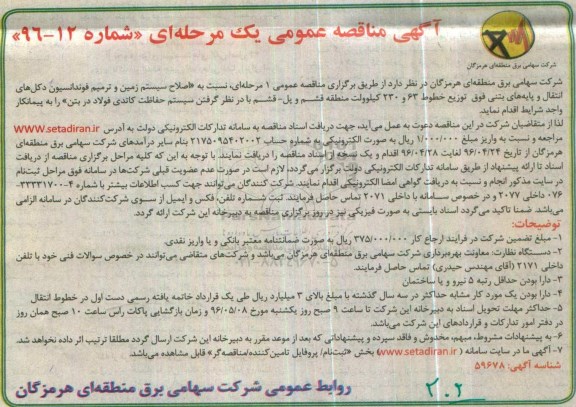 آگهی مناقصه عمومی یک مرحله‌ای «شماره ۱۲-۹۶»
شرکت سهامی برق منطقه‌ای هرمزگان
شرکت سهامی برق منطقه‌ای هرمزگان در نظر دارد از طریق برگزاری مناقصه عمومی ۱ مرحله‌ای، نسبت به «اصلاح سیستم زمین و ترمیم فوندانسیون دکل‌های
انتقال و پایه‌های بتنی فوق توزیع خطوط ۶۳ و ۲۳۰ کیلوولت منطقه قشم و پل- قشم با در نظر گرفتن سیستم حفاظت کاتدی فولاد در بتن» را به پیمانکار
واجد شرایط اقدام نماید.
لذا از متقاضیان شرکت در این مناقصه دعوت به عمل می‌آید، جهت دریافت اسناد مناقصه به سامانه تدارکات الکترونیکی دولت به آدرس www.setadiran.ir
مراجعه و نسبت به واریز مبلغ ۱/۰۰۰/۰۰۰ ریال به صورت الکترونیکی به شماره حساب ۲۱۷۵۰۹۵۴۰۲۰۰۲ بنام سایر درآمدهای شرکت سهامی برق منطقه‌ای
هرمزگان از تاریخ ۹۶/۰۴/۲۴ لغایت ۹۶/۰۴/۲۸ اقدام و یک نسخه از اسناد مناقصه را دریافت نمایند. با توجه به این که کلیه مراحل برگزاری مناقصه از دریافت
اسناد تا ارائه پیشنهاد از طریق سامانه تدارکات الکترونیکی دولت برگزار می‌گردد، لازم است در صورت عدم عضویت قبلی شرکت‌ها در سامانه فوق مراحل ثبت‌نام
در سایت مذکور انجام و نسبت به دریافت گواهی امضا الکترونیکی اقدام نمایند. شرکت کنندگان می‌توانند جهت کسب اطلاعات بیشتر با شماره ۴-۳۳۳۳۱۷۰۰
-۰۷۶ داخلی ۲۰۷۷ و در خصوص سامانه با داخلی ۲۰۷۱ تماس حاصل فرمایند. ثبت شماره تلفن، فکس و ایمیل از سوی شرکت‌کنندگان در سامانه الزامی
می‌باشد. ضمنا تاکید می‌گردد اسناد بایستی به صورت فیزیکی نیز در روز برگزاری مناقصه به دبیرخانه این شرکت ارائه گردد.
توضیحات:
۱- مبلغ تضمین شرکت در فرآیند ارجاع کار ۳۷۵/۰۰۰/۰۰۰ ریال به صورت ضمانتنامه معتبر بانکی و یا واریز نقدی.
۲- دستگاه نظارت: معاونت بهره‌برداری شرکت سهامی برق منطقه‌ای هرمزگان می‌باشد و شرکت‌های متقاضی می‌توانند در خصوص سوالات فنی خود با تلفن
داخلی ۲۱۷۱ (آقای مهندس حیدری) تماس حاصل فرمایند.
۳- دارا بودن حداقل رتبه ۵ نیرو و یا ساختمان
۴- دارا بودن یک مورد کار مشابه حداکثر در سه سال گذشته با مبلغ بالای ۳ میلیارد ریال طی یک قرارداد خاتمه یافته رسمی دست اول در خطوط انتقال
۵- حداکثر مهلت تحویل اسناد به دبیرخانه این شرکت تا ساعت ۹ صبح روز یکشنبه مورخ ۹۶/۰۵/۰۸ و زمان بازگشایی پاکات راس ساعت ۱۰ صبح همان روز
در دفتر امور تدارکات و قراردادهای این شرکت می‌باشد.
۶- به پیشنهادات مشروط، مبهم، مخدوش و فاقد سپرده و پیشنهاداتی که بعد از موعد مقرر به دبیرخانه این شرکت ارسال گردد مطلقا ترتیب اثر داده نخواهد شد.
۷- آگهی ما در سایت سامانه (www.setadiran.ir) بخش «ثبت‌نام/ پروفایل تامین‌کننده/مناقصه‌گر» قابل مشاهده می‌باشد.
شناسه آگهی: ۵۹۶۷۸
روابط عمومی شرکت سهامی برق منطقه‌ای هرمزگان
۲۰۲